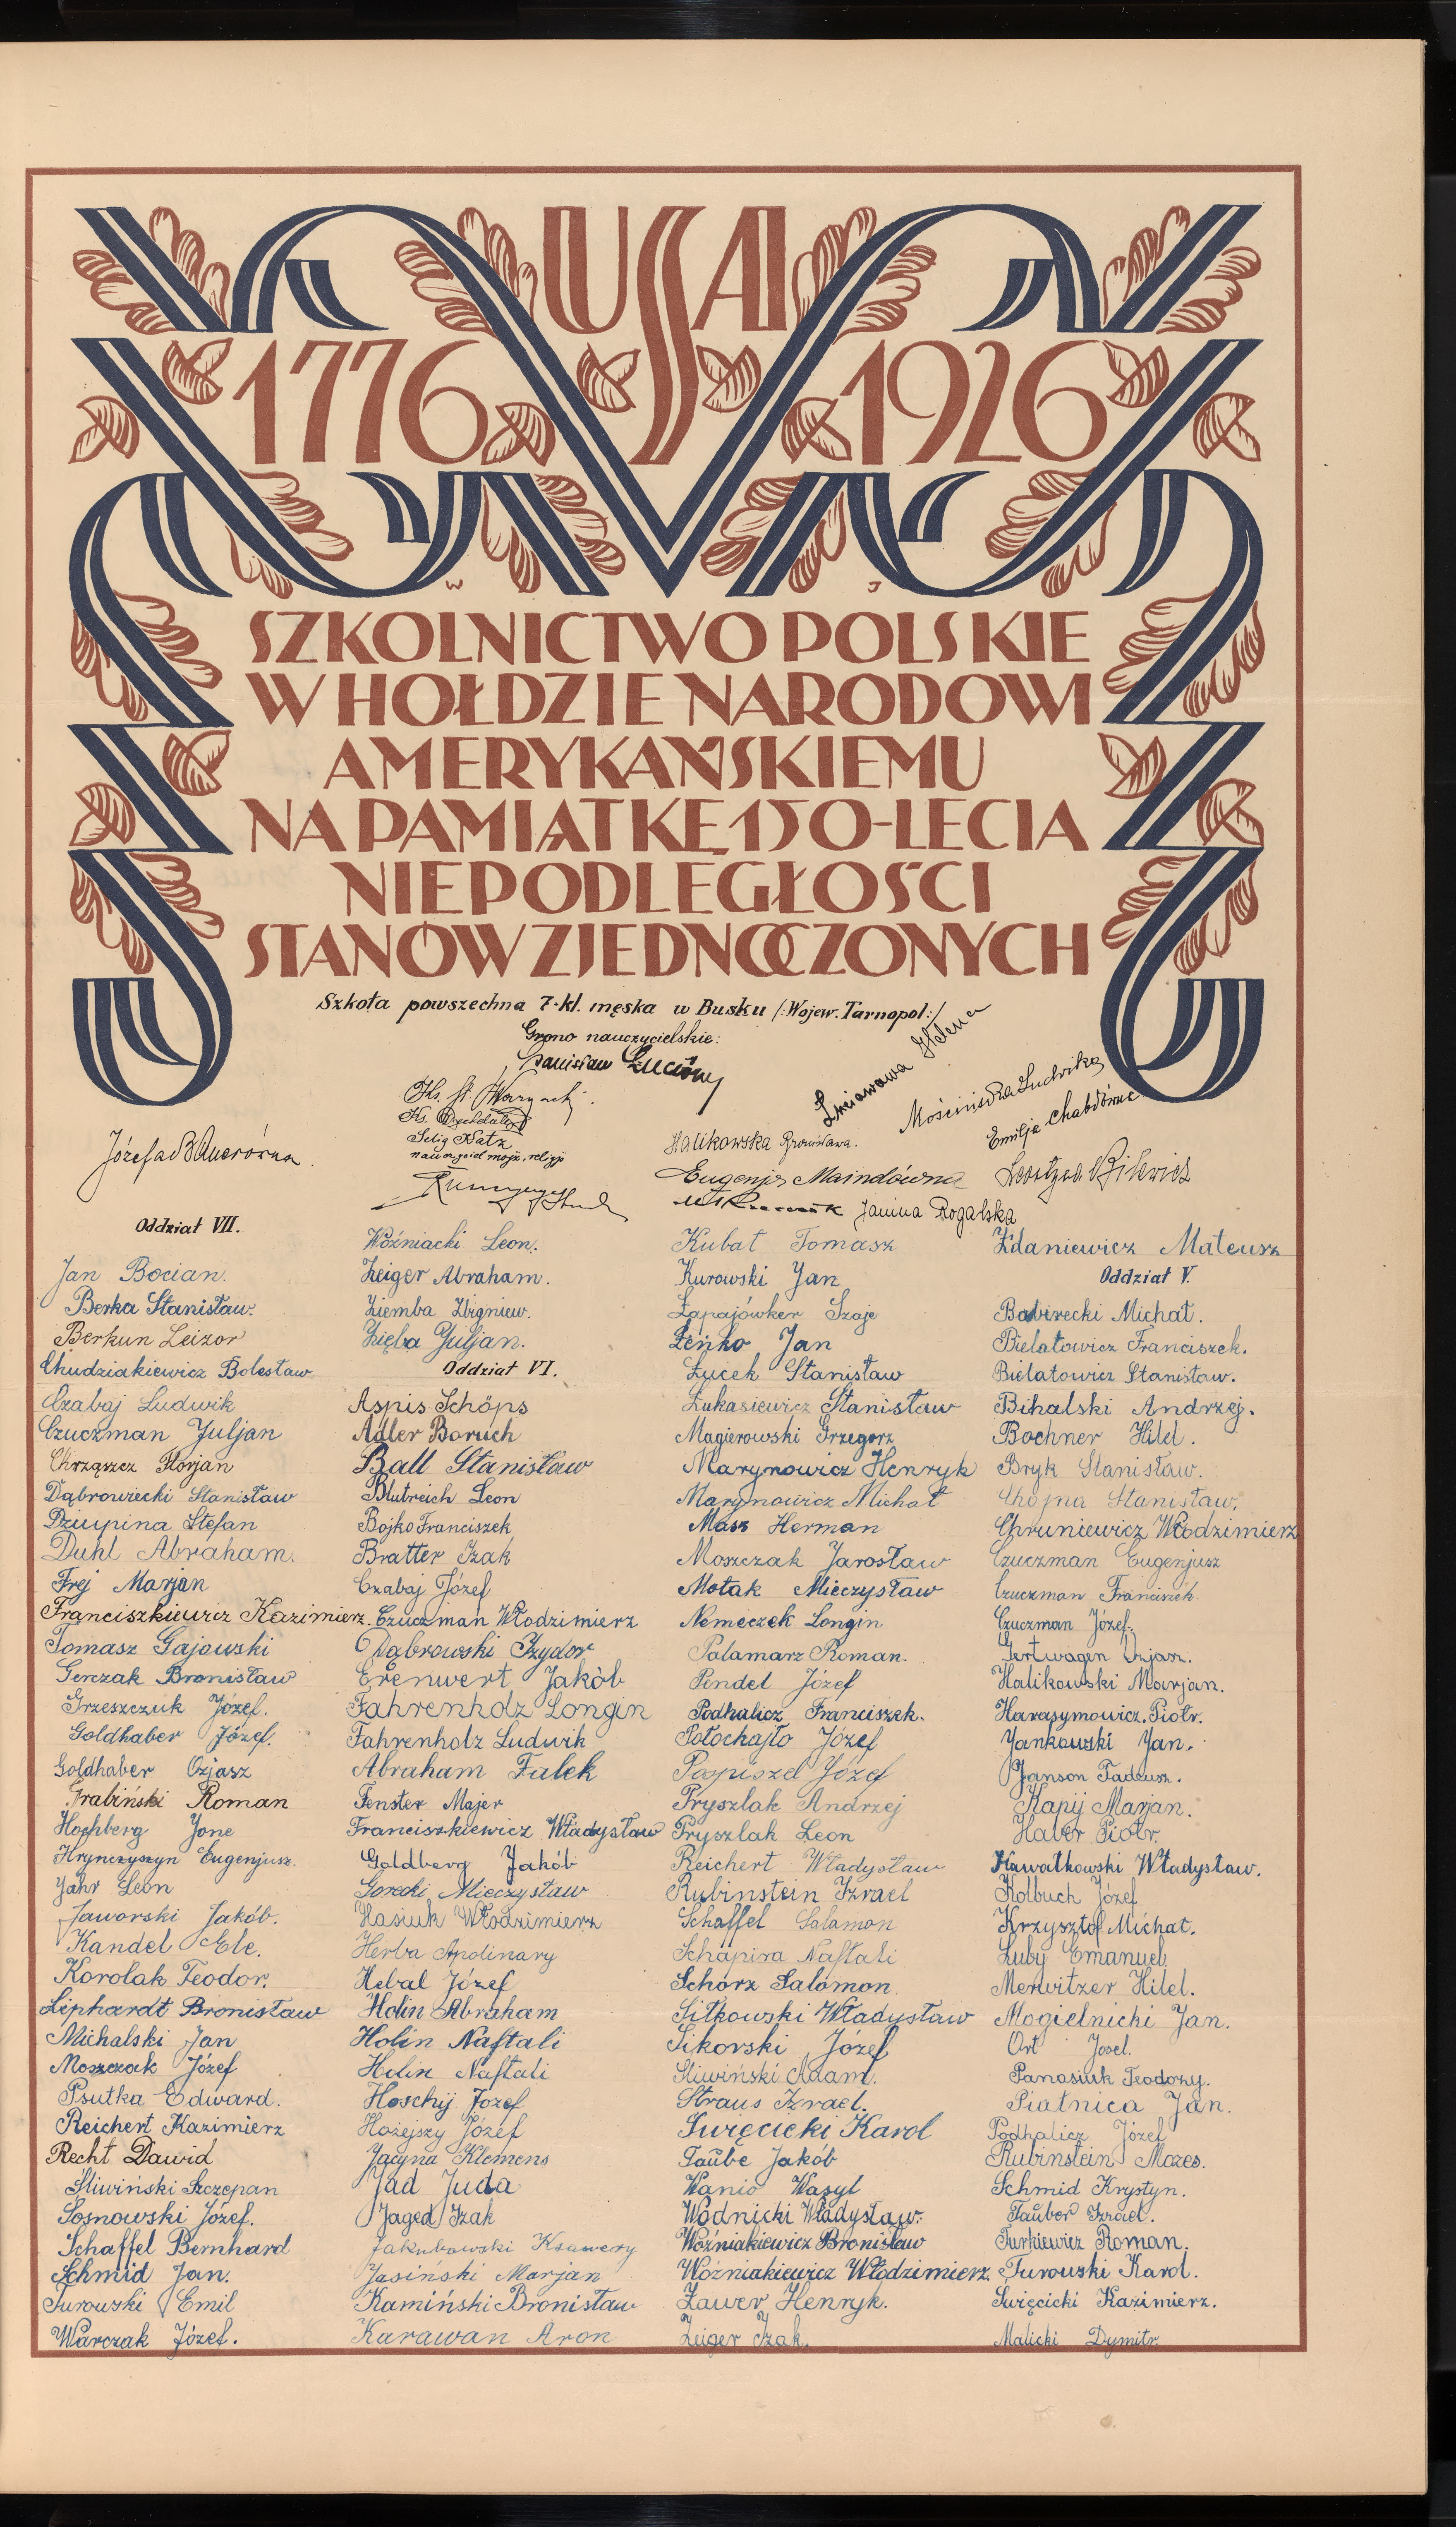 USA
1776 1926
W J
SZKOLNICTWO POLSKIE
W HOŁDZIE NARODOWI
AMERYKAŃSKIEMU
NA PAMIĄTKĘ 150-LECIA
NIEPODLEGŁOŚCI
STANÓW ZJEDNOCZONYCH
Szkoła powszechna 7-kl. męska w Busku /:Wojew. Tarnopol:/
Grono nauczycielskie:
Stanisław
Ks. St.
Ks.
Selig Katz
nauczyciel mojż. religji
Józefa
Helena
Mościńska Ludwika
Emilja Chabłówna
Halikowska Bronisława.
Eugenja Maindówna
Bilewicz
Janina Rogalska
Oddział VII.
Jan Bocian.
Berka Stanisław.
Berkun Leizor
Chudziakiewicz Bolesław
Czabaj Ludwik
Czuczman Juljan
Chrząszcz Florjan
Dąbrowiecki Stanisław
Dziupina Stefan
Duhl Abraham.
Frej Marjan
Franciszkiewicz Kazimierz.
Tomasz Gajowski
Gerczak Bronisław
Grzeszczuk Józef.
Goldhaber Józef.
Goldhaber Ozjasz
Grabiński Roman
Hochberg Jone
Hrynczyszyn Eugenjusz.
Jahr Leon
Jaworski Jakób.
Kandel Ele.
Korolak Teodor.
Liphardt Bronisław
Michalski Jan
Moszczak Józef
Psutka Edward.
Reichert Kazimierz
Recht Dawid
Śliwiński Szczepan
Sosnowski Józef.
Schaffel Bernhard
Schmid Jan.
Turowski Emil
Warczak Józef.
Woźniacki Leon.
Zeiger Abraham.
Ziemba Zbigniew.
Zięba Juljan.
Oddział VI.
Aspis Schöps
Adler Boruch
Ball Stanisław
Blutreich Leon
Bojko Franciszek
Bratter Izak
Czabaj Józef
Czuczman Włodzimierz
Dąbrowski Izydor
Erenwert Jakób
Fahrenholz Longin
Fahrenholz Ludwik
Abraham Falek
Fenster Majer
Franciszkiewicz Władysław
Goldberg Jakób
Gorecki Mieczysław
Hasiuk Włodzimierz
Herba Apolinary
Hebal Józef
Holin Abraham
Holin Naftali
Holin Naftali
Hoschij Józef
Hożejszy Józef
Jacyna Klemens
Jad Juda
Jaged Izak
Jakubowski Ksawery
Jasiński Marjan
Kamiński Bronisław
Karawan Aron
Kubat Tomasz
Kurowski Jan
Łapajówker Szaje
Łeńko Jan
Łucek Stanisław
Łukasiewicz Stanisław
Magierowski Grzegorz
Marynowicz Henryk
Marynowicz Michał
Masz Herman
Moszczak Jarosław
Motak Mieczysław
Nemeczek Longin
Palamarz Roman.
Pendel Józef
Podhalicz Franciszek.
Połochajło Józef
Pospiszel Józef
Pryszlak Andrzej
Pryszlak Leon
Reichert Władysław
Rubinstein Izrael
Schaffel Salamon
Schapira Naftali
Schorz Salomon
Sitkowski Władysław
Sikorski Józef
Śliwiński Adam.
Straus Izrael.
Święcicki Karol
Taube Jakób
Wanio Wasyl
Wodnicki Władysław.
Woźniakiewicz Bronisław
Woźniakiewicz Włodzimierz.
Zawer Henryk.
Zeiger Izak.
Zdaniewicz Mateusz
Oddział V.
Babirecki Michał.
Bielatowicz Franciszek.
Bielatowicz Stanisław.
Bihalski Andrzej.
Bochner Hilel.
Bryk Stanisław.
Chojna Stanisław.
Chruniewicz Włodzimierz
Czuczman Eugenjusz
Czuczman Franciszek
Czuczman Józef.
Gertwagen Ozjasz.
Halikowski Marjan.
Harasymowicz Piotr.
Jankowski Jan.
Janson Tadeusz.
Kapij Marjan.
Haber Piotr.
Kawałkowski Władysław.
Kolbuch Józef
Krzysztof Michał.
Luby Emanuel
Merwitzer Hilel.
Mogielnicki Jan.
Ort Josel.
Panasiuk Teodozy.
Piatnica Jan.
Podhalicz Józef
Rubinstein Mozes.
Schmid Krystyn.
Tauber Izrael.
Turkiewicz Roman.
Turowski Karol.
Święcicki Kazimierz.
Malicki Dymitr